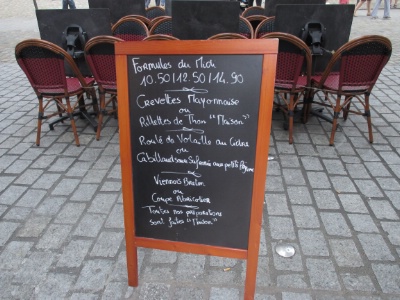 Formules du Midi
10.50/12.50/14.90
Crevettes Mayonnaise
ou
Rillettes de Thon "Maison"
Roulé de Volaille au Cidre
ou
Cabillaud sauce Safranée aux petits légumes
Viennois Breton
ou
Coupe Abricotine
Toutes nos préparations
sont faites "Maison"